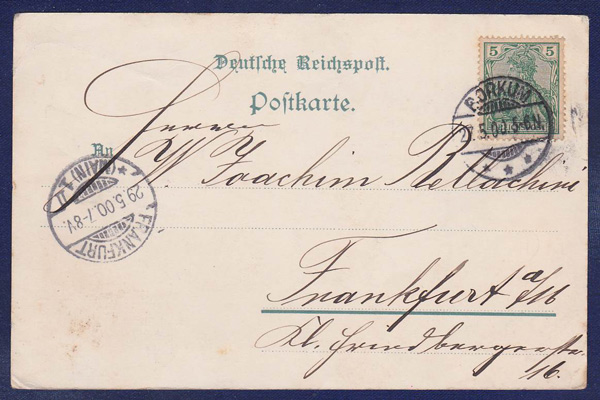 Deutsche Reichspost.
Postkarte.
5 5
BORKUM
5.00.
An
Herrn
Joachim
Frankfurt a/M
Kl. Friedbergerstr.
16.
FRANKFURT
(MAIN) 1.
29.5.00.7-8V.